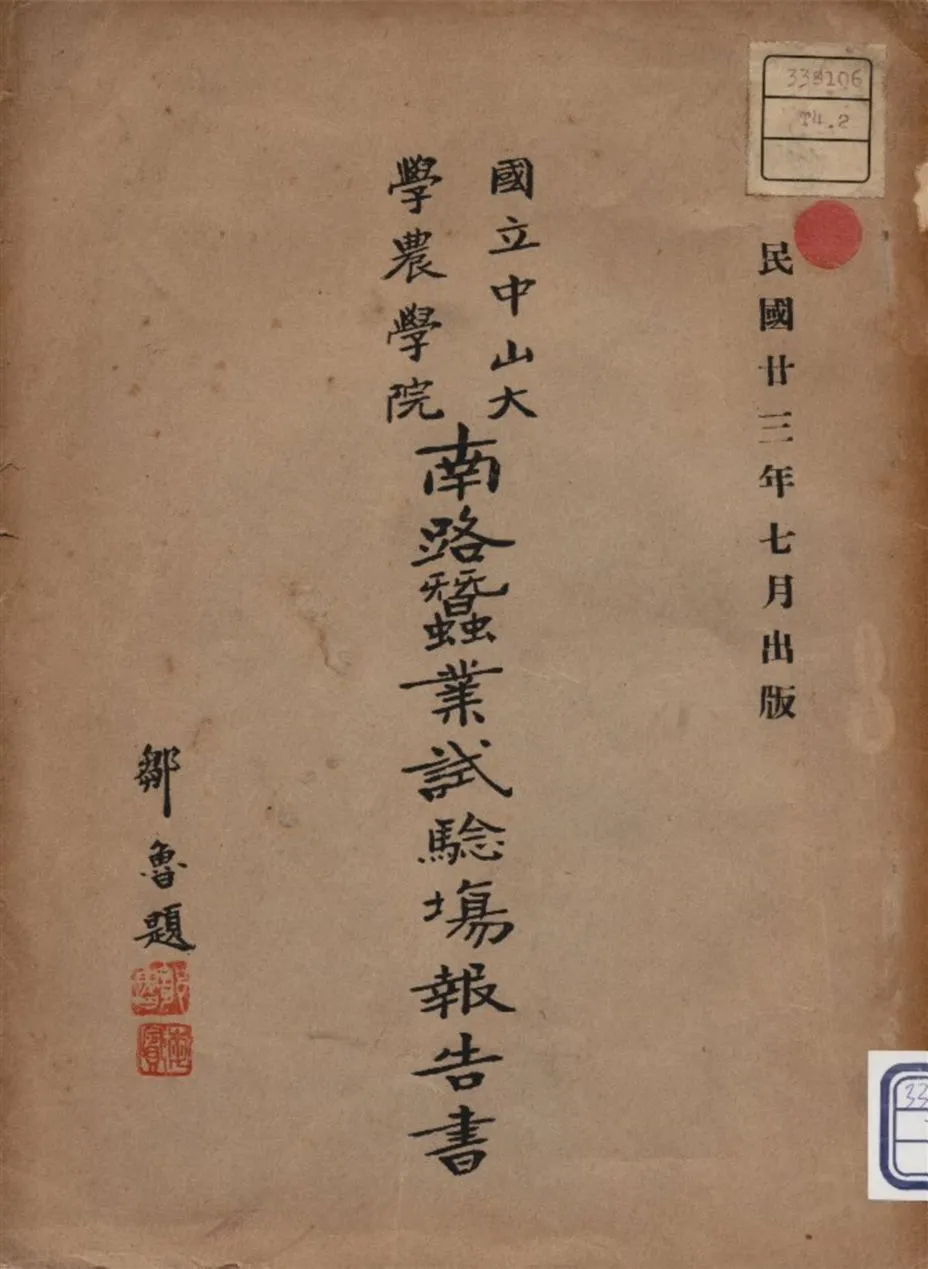 338206
T4.2
民國廿三年七月出版
國立中山大
學農學院
南路蠶業試驗場報告書
鄒魯題
33